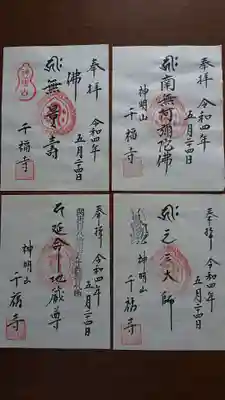 奉拝
令和四年
五月二四日
無量壽
佛
神明山
千福寺
奉拝
令和四年
五月二四日
南無阿弥陀佛
神明山
千福寺
奉拝
令和四年
五月二四日
延命地蔵尊
神明山
千福寺
奉拝
令和四年
五月二四日
元三大師
神明山
千福寺